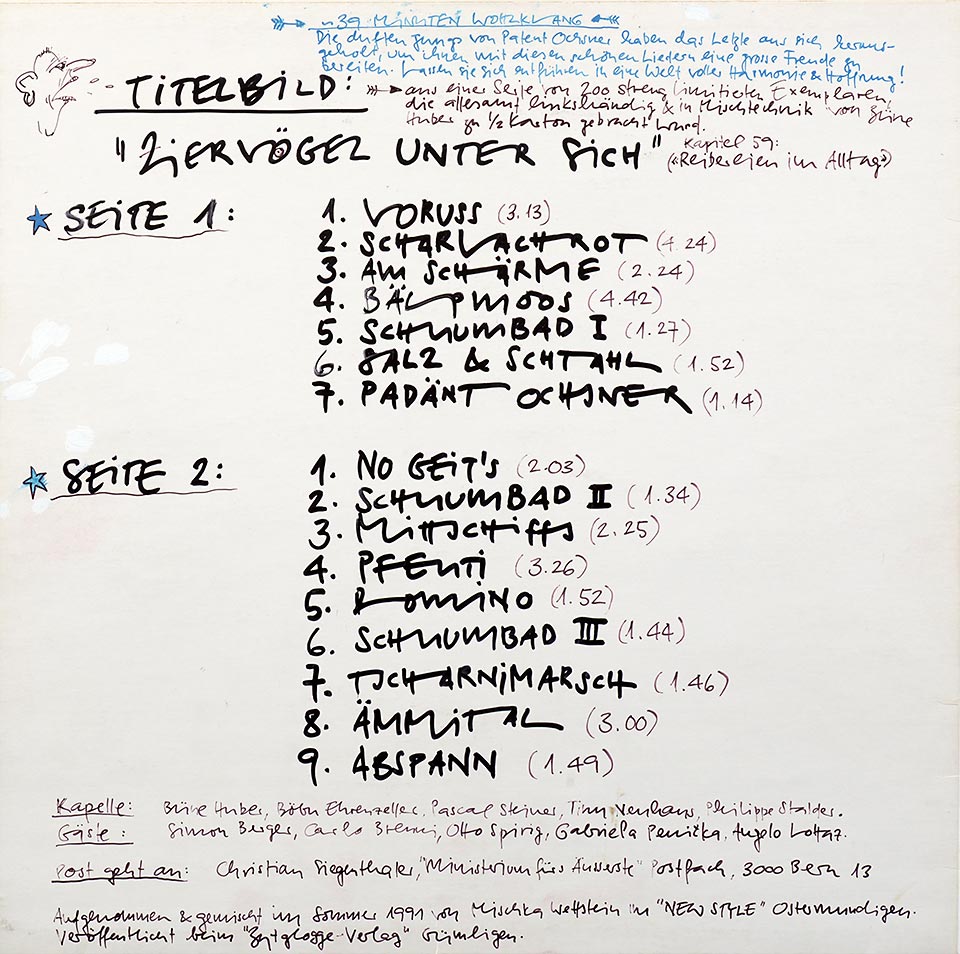 ~39 MINUTEN WOHLKLANG
Die duften Jungs von Patent Ochsner haben das Letzte aus sich heraus-
geholt, um ihnen mit diesen schönen Liedern eine grosse Freude zu
bereiten. Lassen sie sich entführen in eine Welt voller Harmonie & Hoffnung!
TITELBILD: aus einer Serie von 200 streng limitierten Exemplaren,
die allesamt linkshändig & in Mischtechnik von Büne
Huber zu 1/2 Karton gebracht wurd.
"ZIERVÖGEL UNTER SICH" Kapitel 59:
(«Reibereien im Alltag»)
SEITE 1:
1. VORUSS (3.13)
2. SCHARLACHROT (4.24)
3. AM SCHÄRME (2.24)
4. BÄLPMOOS (4.42)
5. SCHUUMBAD I (1.27)
6. SALZ & SCHTAHL (1.52)
7. PADÄNT OCHSNER (1.14)
SEITE 2:
1. NO GEIT'S (2.03)
2. SCHUUMBAD II (1.34)
3. MITTSCHIFFS (2.25)
4. PFENTI (3.26)
5. ROMINO (1.52)
6. SCHUUMBAD III (1.44)
7. TSCHARNIMARSCH (1.46)
8. ÄMMITAL (3.00)
9. ABSPANN (1.49)
Kapelle: Büne Huber, Böbu Ehrenzeller, Pascal Steiner, Timm Neuhaus, Philippe Stalder.
Gäste: Simon Berger, Carlo Bremi, Otto Spirig, Gabriela Penička, Angelo Lottaz.
Post geht an: Christian Siegenthaler, "Ministerium fürs Äusserste" Postfach, 3000 Bern 13
Aufgenommen & gemischt im Sommer 1991 von Mischka Wettstein im "NEW STYLE" Ostermundigen.
Veröffentlicht beim "Zytglogge-Verlag" Gümligen.